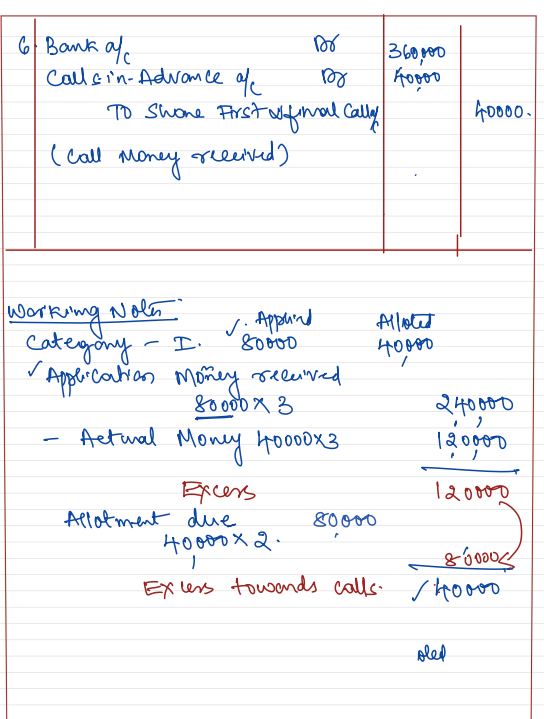 6. Bank a/c Dr 360,000
Calls in-Advance a/c Dr 40,000
To Share First & final Call a/c 40000.
(Call Money received)
Working Notes
✓. Applied Alloted
Category - I. 80000 40,000
✓ Application Money received
80000 x 3 240,000
- Actual Money 40000x3 120,000
Excess 120000
Allotment due 80000
40000 x 2.
80000
Excess towards calls. ✓ 40000